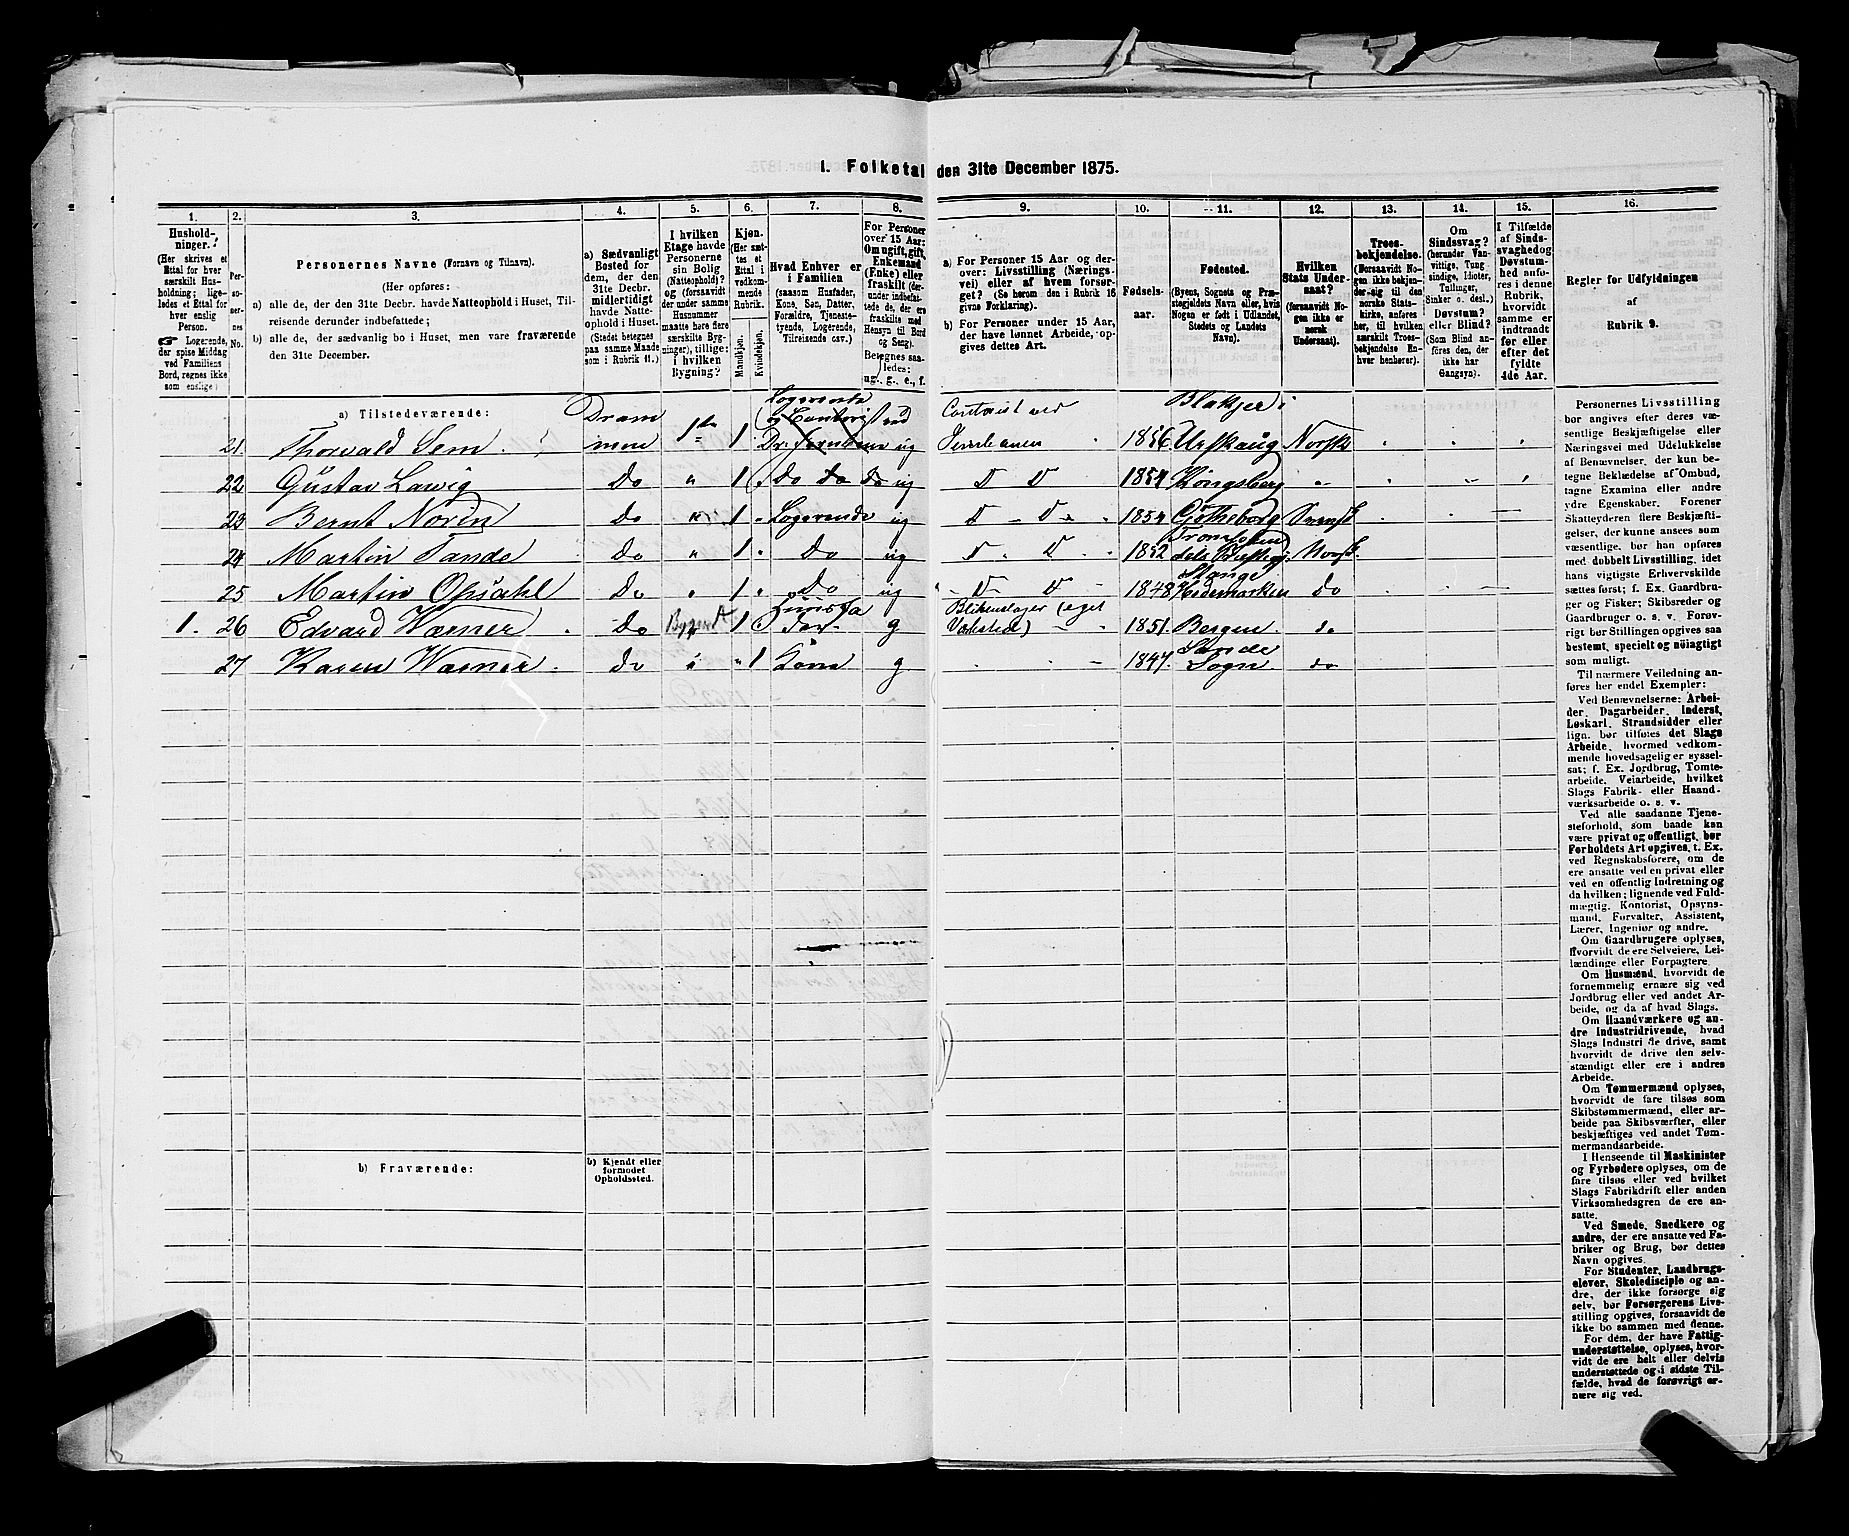 1. Folketal den 31te December 1875.
1. 2. 3. 4. 5. 6. 7. 8. 9. 10. 11. 12. 13. 14. 15. 16.
Hushold-
ninger.
(Her skrives et
Ettal for hver
særskilt Hus-
holdning; lige-
ledes et Ettal for
hver enslig
Person.
Logerende,
der spise Middag
ved Familiens
Bord, regnes ikke
som enslige.)
Per-
so-
ner-
nes
No.
Personernes Navne (Fornavn og Tilnavn).
(Her opføres:
a) alle de, der den 31te Decbr. havde Natteophold i Huset, Til-
reisende derunder indbefattede;
b) alle de, der sædvanlig bo i Huset, men vare fraværende
den 31te December.
a) Sædvanligt
Bosted for
dem, der den
31te Decbr.
midlertidigt
havde Natte-
ophold i Huset.
(Stedet betegnes
paa samme Maade
som i Rubrik 11.)
I hvilken
Etage havde
Personerne
sin Bolig
(Natteophold)?
og (forsaavidt
der under samme
Husnummer
maatte høre flere
særskilte Byg-
ninger), tillige:
i hvilken
Bygning?
Kjøn.
(Her sæt-
tes et
Ettal i
vedkom-
mende
Rubrik.)
Mandkjøn.
Kvindekjøn.
Hvad Enhver er
i Familien
(saasom Husfader,
Kone, Søn, Datter,
Forældre, Tjeneste-
tyende, Logerende,
Tilreisende osv.).
For Personer
over 15 Aar:
Om ugift, gift,
Enkemand
(Enke) eller
fraskilt (der-
under indbefat-
tede de, der ere
fraskilte med
Hensyn til Bord
og Seng).
Betegnes saa-
ledes:
ug., g., e., f.
a) For Personer 15 Aar og der-
over: Livsstilling (Nærings-
vei) eller af hvem forsør-
get? (Se herom den i Rubrik 16
givne Forklaring).
b) For Personer under 15 Aar,
der have lønnet Arbeide, op-
gives dettes Art.
Fødsels-
aar.
Fødested.
(Byens, Sognets og Præ-
stegjeldets Navn eller, hvis
Nogen er født i Udlandet,
Stedets og Landets
Navn).
Hvilken
Stats Under-
saat?
(forsaavidt No-
gen ikke er
norsk
Undersaat).
Troes-
bekjendelse.
(Forsaavidt No-
gen ikke bekjen-
der sig til den
norske Stats-
kirke, anføres
her, til hvilken
særskilt Troes-
bekjendelse En-
hver henhører).
Om
Sindssvag?
(herunder Van-
vittige, Tung
sindige, Idioter,
Tullinger,
Sinker o. desl.)
Døvstum?
eller Blind?
(Som Blind an-
føres den, der
ikke har
Gangsyn).
I Tilfælde
af Sinds-
svaghed og
Døvstum-
hed anfø-
res i denne
Rubrik,
hvorvidt
samme er
indtraadt
før eller
efter det
fyldte
4de Aar.
Regler for Udfyldningen
af
Rubrik 9.
a) Tilstedeværende:
21. Thorvald Sem Drammen 1ste 1 Logerende og Contorist ved Dr. Jernbane ug Contorist ved Jernbanen 1856 Blakjer i Urskaug Norsk
22 Gustav Lawig Do " 1 Do Do Do ug D D 1854 Kongsberg
23 Bernt Norin Do 1 Logerende ug D D 1854 Gøtheborg Svensk
24 Martin Tande Do " 1 Do ug D D 1852 Norsk
25 Martin Opsahl Do " 1 Do ug D D 1848 Stange Hedemarken do
1. 26 Edvard Wærner Do 1 Far g Blikenslager (eget Værksted) 1851. Bergen do
27 Karen Wærner Do " 1 Kone g 1847. Sogn do
Personernes Livsstilling
bør angives efter deres væ-
sentlige Beskjæftigelse eller
Næringsvei med Udelukkelse
af Benævnelser, der kun be-
tegne Beklædelse af Ombud,
tagne Examina eller andre
ydre Egenskaber. Forener
Skatteyderen flere Beskjæfti-
gelser, der kunne ansees som
væsentlige, bør han opføres
med dobbelt Livsstilling, idet
hans vigtigste Erhvervskilde
sættes først; f. Ex. Gaardbru-
ger og Fisker; Skibsreder og
Gaardbruger o. s. v. Forøv-
rigt bør Stillingen opgives saa
bestemt, specielt og nøiagtigt
som muligt.
Til nærmere Veiledning an-
føres her endel Exempler:
Ved Benævnelserne: Arbei-
der, Dagarbeider, Inderst,
Løskarl, Strandsidder eller
lign. bør tilføies det Slags
Arbeide, hvormed vedkom-
mende hovedsagelig er syssel-
sat; f. Ex. Jordbrug, Tomte-
arbeide, Veiarbeide, hvilket
Slags Fabrik- eller Haand-
værksarbeide o. s. v.
Ved alle saadanne Tjene-
steforhold, som baade kan
være privat og offentligt, bør
Forholdets Art opgives, t. Ex.
ved Regnskabsførere, om de
ere ansatte ved en privat eller
ved en offentlig Indretning og
da hvilken; lignende ved Fuld-
mægtig, Kontorist, Opsyns-
mand, Forvalter, Assistent,
Lærer, Ingeniør og andre.
Om Gaardbrugere oplyses,
hvorvidt de ere Selveiere, Lei-
lændinge eller Forpagtere.
Om Husmænd, hvorvidt de
fornemmelig ernære sig ved
Jordbrug eller ved andet Ar-
beide, og da af hvad Slags.
Om Haandværkere og an-
dre Industridrivende, hvad
Slags Industri de drive, samt
hvorvidt de drive den selv-
stændigt eller ere i andres
Arbeide.
Om Tømmermænd oplyses,
hvorvidt de fare tilsøs som
Skibstømmermænd, eller ar-
beide paa Skibsværfter, eller
beskjæftiges ved andet Tøm-
mermandsarbeide.
I Henseende til Maskinister
og Fyrbødere oplyses, om de
fare tilsøs eller ved hvilket
Slags Fabrikdrift eller anden
Virksomhedsgren de ere an-
satte.
Ved Smede, Snedkere og
andre, der ere ansatte ved Fa-
briker og Brug, bør dettes
Navn opgives.
For Studenter, Landbrugs-
elever, Skoledisciple og an-
dre, der ikke forsørge sig
selv, bør Forsørgerens Livs-
stilling opgives, forsaavidt de
ikke bo sammen med denne.
For dem, der have Fattig-
understøttelse, oplyses, hvor-
vidt de ere helt eller delvis
understøttede og i sidste Til-
fælde, hvad de forøvrigt er-
nære sig ved.
b) Fraværende:
b) Kjendt eller
formodet
Opholdssted.